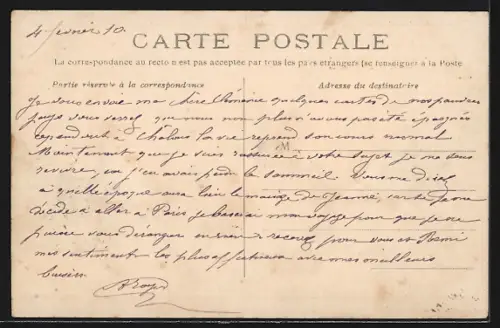 4 février 10.
CARTE POSTALE
La correspondance au recto n'est pas acceptée par tous les pays étrangers (se renseigner à la Poste
Partie réservée à la correspondance
Adresse du destinataire
Je vous envoie ma chère quelques cartes de nos pauvres
pays vous verrez que nous non plus n'avons pas été épargnés
cependant à Châlons la vie reprend son cours normal
Maintenant que je suis rassurée à votre sujet je me sens
revivre, car j'en avais perdu le sommeil. Vous me direz
à quelle époque aura lieu le mariage de Jeanne, car si je me
décide à aller à Paris je baserai mon voyage pour que je ne
puisse vous déranger en rien recevez pour vous et Remi
mes sentiments les plus affectueux avec mes meilleurs
baisers.